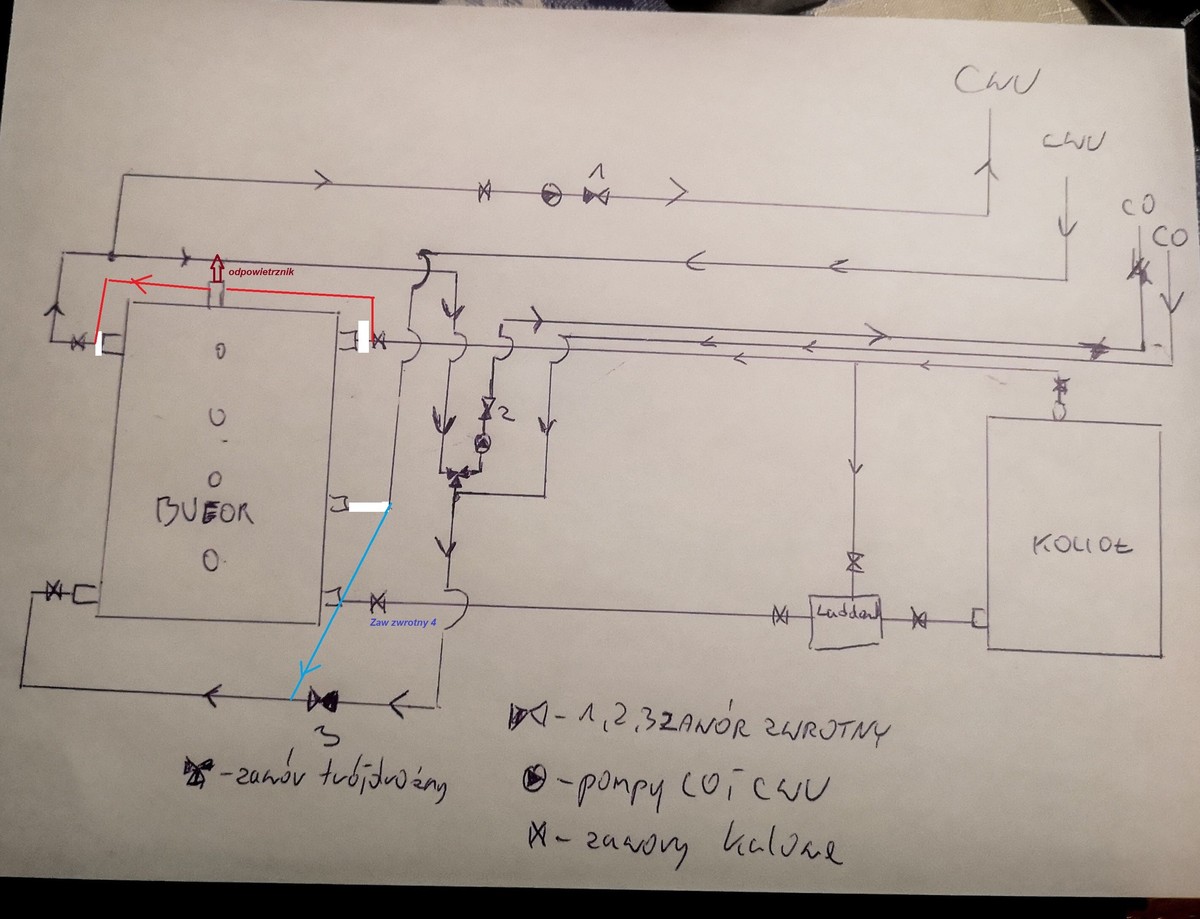 CWU
CWU
CO
CO
1
odpowietrznik
2
BUFOR
KOCIOŁ
Laddomat
Zaw zwrotny 4
3
- 1,2,3 ZAWÓR ZWROTNY
- zawór trójdrożny
- pompy CO i CWU
- zawory kulowe